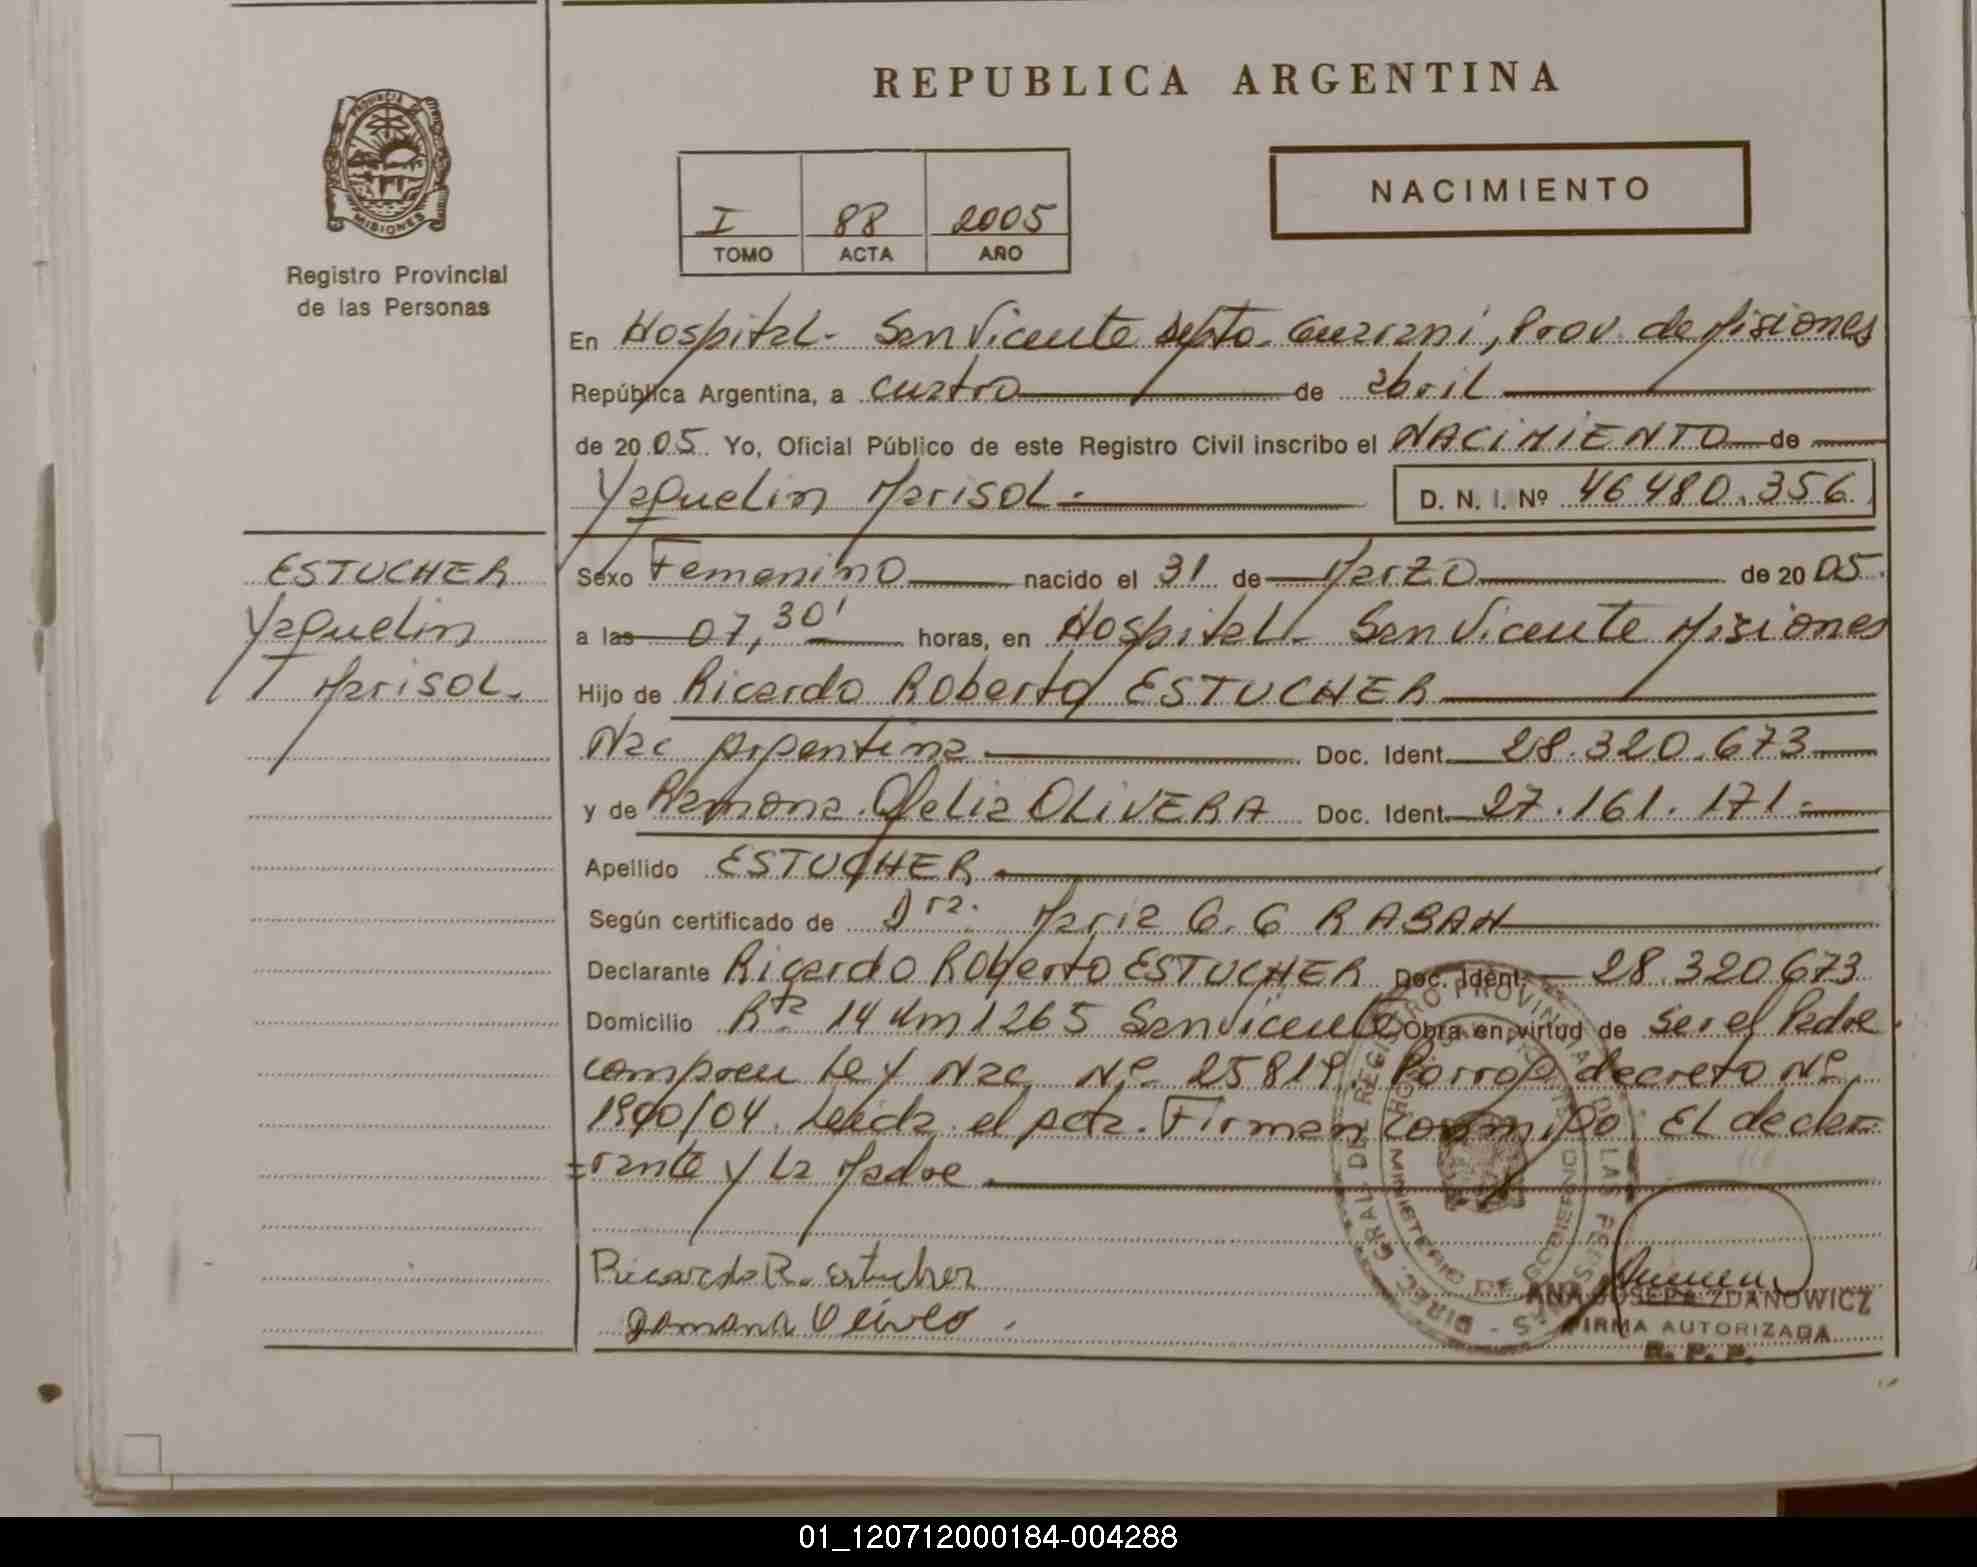 REPUBLICA ARGENTINA
PROVINCIA DE
MISIONES
Registro Provincial
de las Personas
I 88 2005
TOMO ACTA AÑO
NACIMIENTO
En Hospital - San Vicente Depto. Guarani, Prov. de Misiones
República Argentina, a cuatro de abril
de 2005 Yo, Oficial Público de este Registro Civil inscribo el NACIMIENTO de
Yaquelin Marisol.- D. N. I. Nº 46480.356
ESTUCHER
Yaquelin
Marisol.
Sexo Femenino nacido el 31 de Marzo de 2005.
a las 07,30' horas, en Hospital - San Vicente Misiones
Hijo de Ricardo Roberto ESTUCHER
Nac Argentina Doc. Ident. 28.320.673
y de Ramona Ofelia OLIVERA Doc. Ident. 27.161.171.-
Apellido ESTUCHER
Según certificado de Dra. Maria G. G RABAH
Declarante Ricardo Roberto ESTUCHER Doc. Ident. 28.320673
Domicilio Rta 14 Km 1265 San Vicente Obra en virtud de ser el Padre.
Ley Nac Nº 25819. decreto Nº
/04. Leida el acta. Firman conmigo El decla=
=rante y La Madre
Ricardo R. estucher
Ramona
ANA JOSEFA ZDANOWICZ
FIRMA AUTORIZADA
R. P. P.
DIREC. GRAL. DE REGISTRO PROVINCIAL DE LAS PERSONAS
01_120712000184-004288